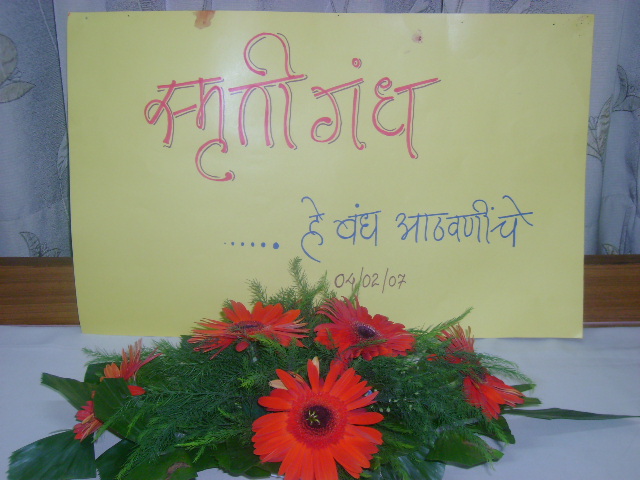 स्मृती गंध
..... हे बंध आठवणींचे
04/02/07